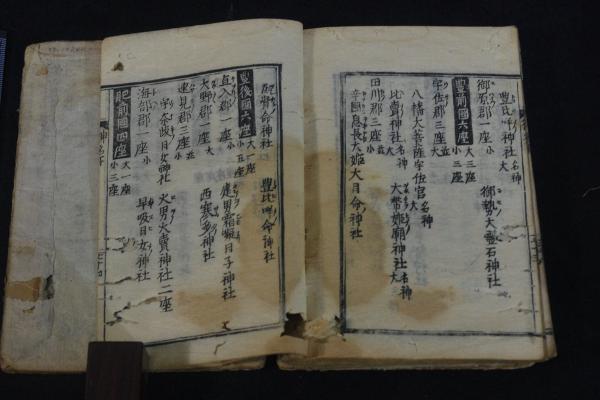 豊比咩神社名神大
御原郡一座小 御勢大霊石神社
豊前國六座 大三座 小三座
宇佐郡三座並大
八幡大菩薩宇佐宮名神大
比賣神社名神大 大帯姫廟神社名神大
田川郡三座並小
辛國息長大姫大目命神社
忍骨命神社 豊比咩命神社
豊後國六座 大一座 小五座
直入郡一座小 健男霜凝日子神社
大野郡一座 西寒多神社
速見郡三座並小
宇奈岐日女神社 火男火賣神社二座
海部郡一座小 早吸日女神社
肥前國四座 大一座 小三座